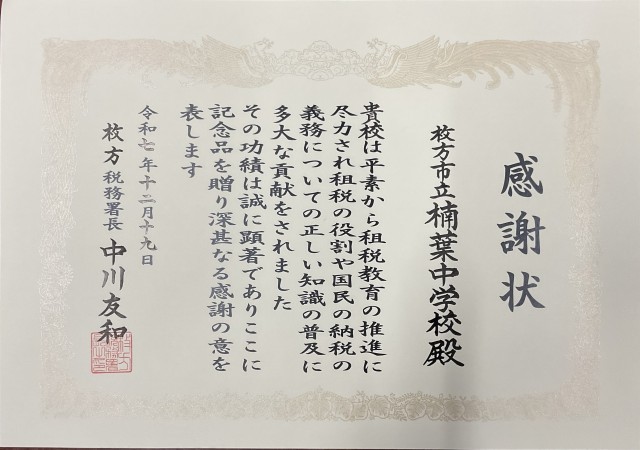 感謝状
枚方市立楠葉中学校殿
貴校は平素から租税教育の推進に
尽力され租税の役割や国民の納税の
義務についての正しい知識の普及に
多大な貢献をされました
その功績は誠に顕著でありここに
記念品を贈り深甚なる感謝の意を
表します
令和七年十二月十九日
枚方税務署長 中川友和